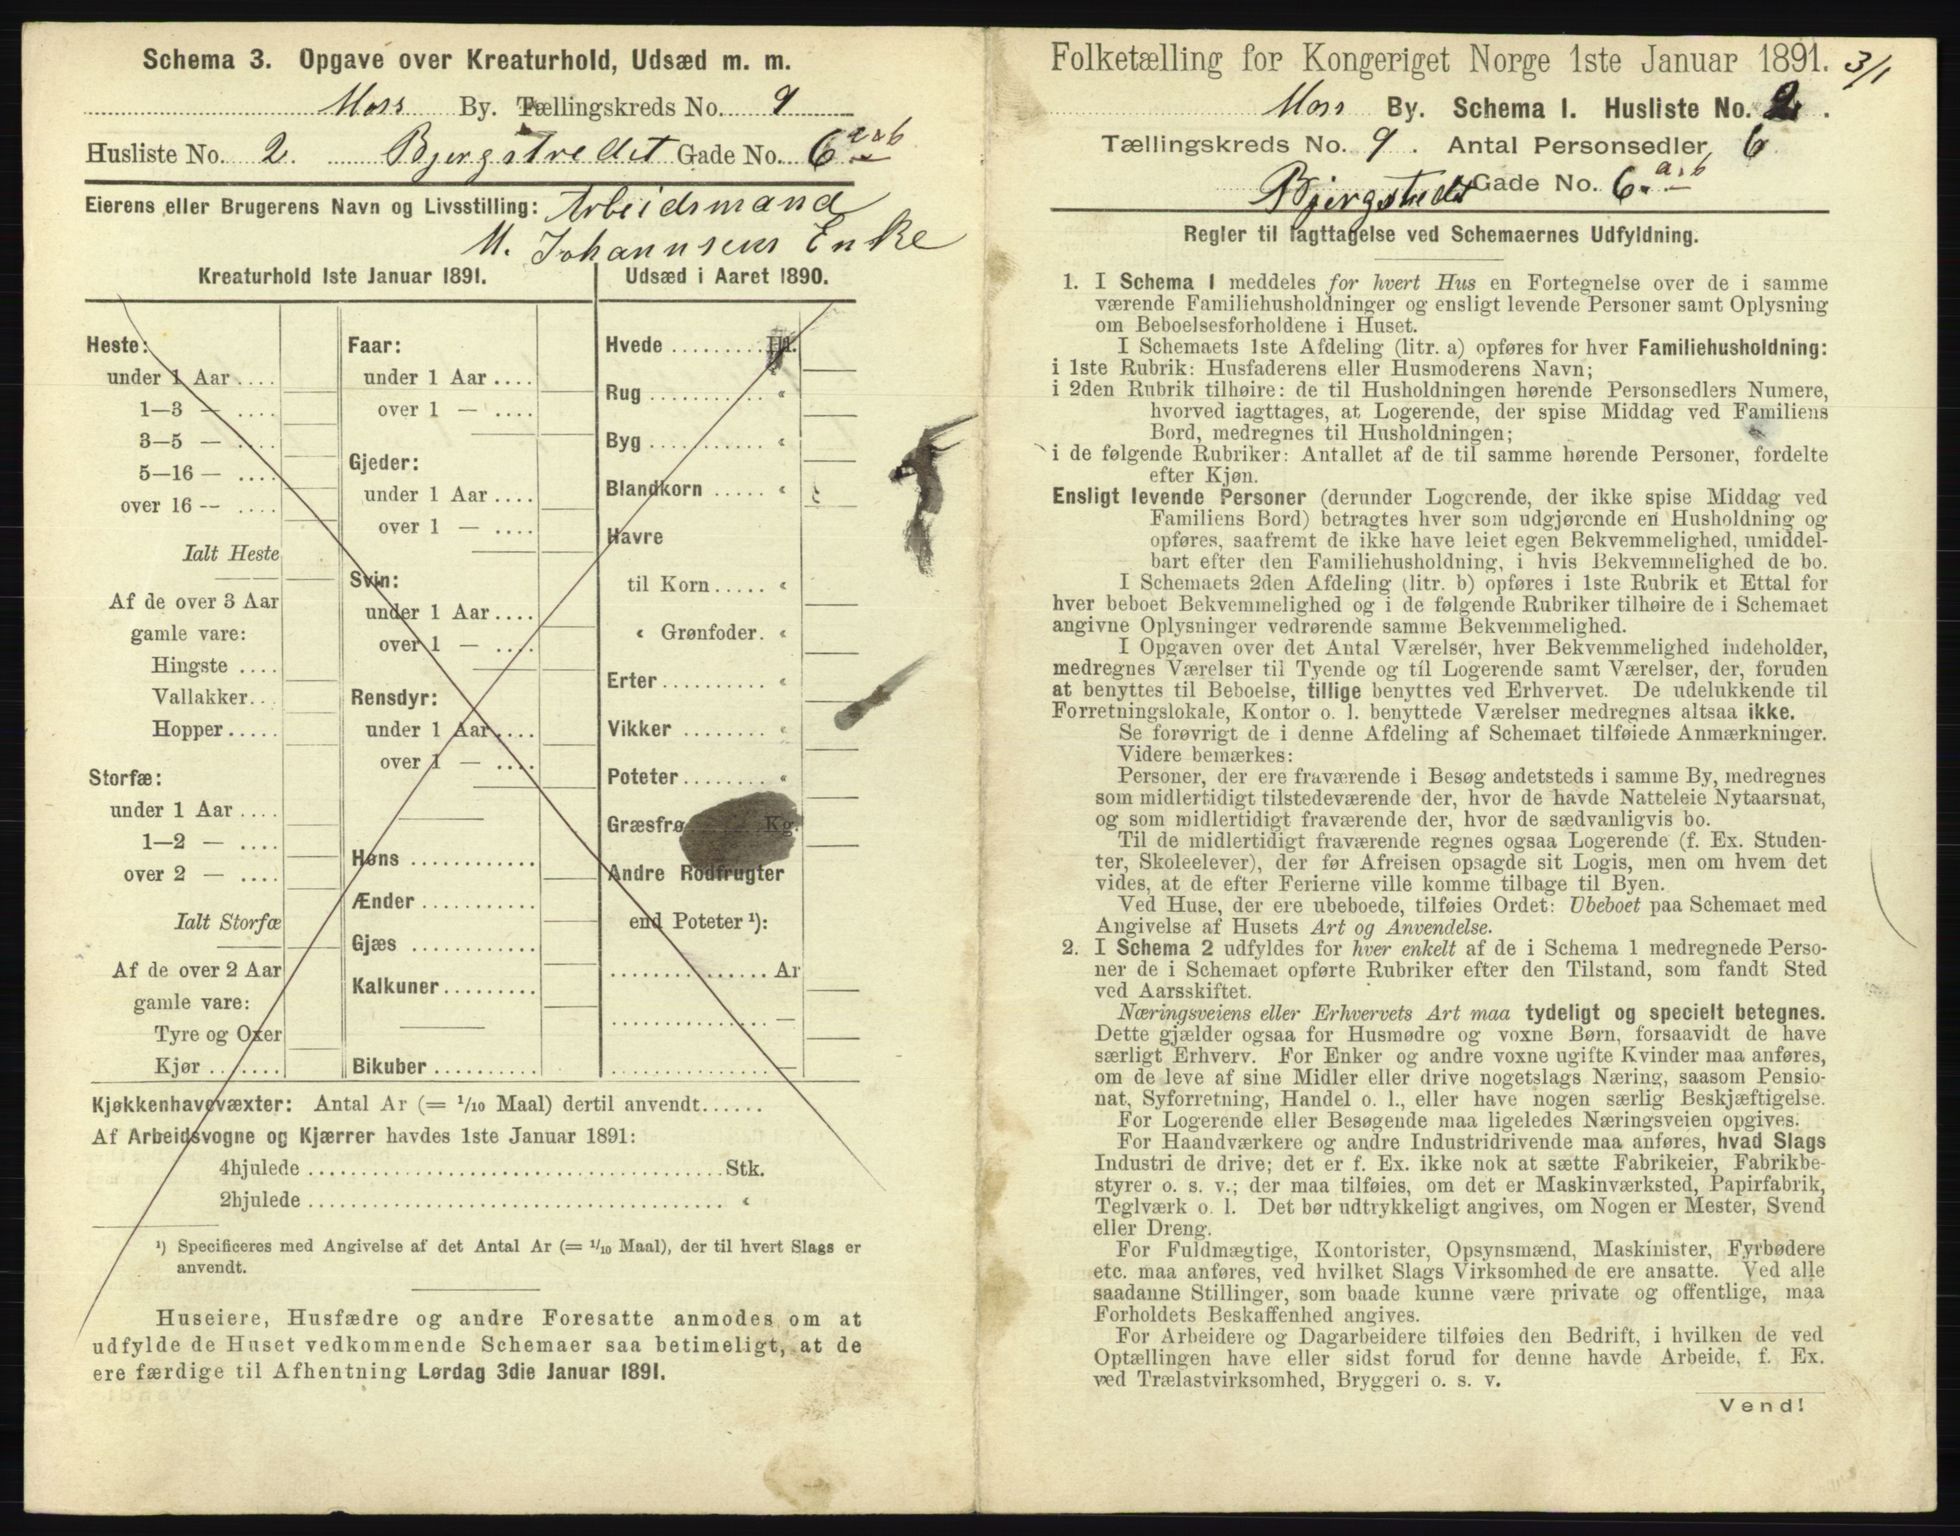 Schema 3. Opgave over Kreaturhold, Udsæd m. m.
Moss By. Tællingskreds No. 9
Husliste No. 2. Bjergstredet Gade No. 6 a & b
Eierens eller Brugerens Navn og Livsstilling: Arbeidsmand
M. Johannsens Enke
Kreaturhold 1ste Januar 1891.
Heste:
under 1 Aar ....
1—3 — ....
3—5 — ....
5—16 — ....
over 16 — ....
Ialt Heste
Af de over 3 Aar
gamle vare:
Hingste ....
Vallakker...
Hopper.....
Storfæ:
under 1 Aar ....
1—2 — ....
over 2 — ....
Ialt Storfæ
Af de over 2 Aar
gamle vare:
Tyre og Oxer
Kjør .......
Faar:
under 1 Aar ....
over 1 — ....
Gjeder:
under 1 Aar ....
over 1 — ....
Svin:
under 1 Aar ....
over 1 — ....
Rensdyr:
under 1 Aar ....
over 1 — ....
Høns ............
Ænder ...........
Gjæs ............
Kalkuner.........
Bikuber ..........
Udsæd i Aaret 1890.
Hvede .......... Hl.
Rug ............ «
Byg ............ «
Blandkorn ...... «
Havre
til Korn ..... «
« Grønfoder. «
Erter ........... «
Vikker ......... «
Poteter ......... «
Græsfrø ........ Kg.
Andre Rodfrugter
end Poteter ¹):
................ Ar
................ —
................ —
Kjøkkenhavevæxter: Antal Ar (= 1/10 Maal) dertil anvendt......
Af Arbeidsvogne og Kjærrer havdes 1ste Januar 1891:
4hjulede ........................................ Stk.
2hjulede ........................................ «
¹) Specificeres med Angivelse af det Antal Ar (= 1/10 Maal), der til hvert Slags er
anvendt.
Huseiere, Husfædre og andre Foresatte anmodes om at
udfylde de Huset vedkommende Schemaer saa betimeligt, at de
ere færdige til Afhentning Lørdag 3die Januar 1891.
Folketælling for Kongeriget Norge 1ste Januar 1891. 3/1
Moss By. Schema I. Husliste No. 2.
Tællingskreds No. 9. Antal Personsedler 6
Bjergstredet Gade No. 6. a & b
Regler til Iagttagelse ved Schemaernes Udfyldning.
1. I Schema I meddeles for hvert Hus en Fortegnelse over de i samme
værende Familiehusholdninger og ensligt levende Personer samt Oplysning
om Beboelsesforholdene i Huset.
I Schemaets 1ste Afdeling (litr. a) opføres for hver Familiehusholdning:
i 1ste Rubrik: Husfaderens eller Husmoderens Navn;
i 2den Rubrik tilhøire: de til Husholdningen hørende Personsedlers Numere,
hvorved iagttages, at Logerende, der spise Middag ved Familiens
Bord, medregnes til Husholdningen;
i de følgende Rubriker: Antallet af de til samme hørende Personer, fordelte
efter Kjøn.
Ensligt levende Personer (derunder Logerende, der ikke spise Middag ved
Familiens Bord) betragtes hver som udgjørende en Husholdning og
opføres, saafremt de ikke have leiet egen Bekvemmelighed, umiddel-
bart efter den Familiehusholdning, i hvis Bekvemmelighed de bo.
I Schemaets 2den Afdeling (litr. b) opføres i 1ste Rubrik et Ettal for
hver beboet Bekvemmelighed og i de følgende Rubriker tilhøire de i Schemaet
angivne Oplysninger vedrørende samme Bekvemmelighed.
I Opgaven over det Antal Værelser, hver Bekvemmelighed indeholder,
medregnes Værelser til Tyende og til Logerende samt Værelser, der, foruden
at benyttes til Beboelse, tillige benyttes ved Erhvervet. De udelukkende til
Forretningslokale, Kontor o. l. benyttede Værelser medregnes altsaa ikke.
Se forøvrigt de i denne Afdeling af Schemaet tilføiede Anmærkninger.
Videre bemærkes:
Personer, der ere fraværende i Besøg andetsteds i samme By, medregnes
som midlertidigt tilstedeværende der, hvor de havde Natteleie Nytaarsnat,
og som midlertidigt fraværende der, hvor de sædvanligvis bo.
Til de midlertidigt fraværende regnes ogsaa Logerende (f. Ex. Studen-
ter, Skoleelever), der før Afreisen opsagde sit Logis, men om hvem det
vides, at de efter Ferierne ville komme tilbage til Byen.
Ved Huse, der ere ubeboede, tilføies Ordet: Ubeboet paa Schemaet med
Angivelse af Husets Art og Anvendelse.
2. I Schema 2 udfyldes for hver enkelt af de i Schema 1 medregnede Perso-
ner de i Schemaet opførte Rubriker efter den Tilstand, som fandt Sted
ved Aarsskiftet.
Næringsveiens eller Erhvervets Art maa tydeligt og specielt betegnes.
Dette gjælder ogsaa for Husmødre og voxne Børn, forsaavidt de have
særligt Erhverv. For Enker og andre voxne ugifte Kvinder maa anføres,
om de leve af sine Midler eller drive nogetslags Næring, saasom Pensio-
nat, Syforretning, Handel o. l., eller have nogen særlig Beskjæftigelse.
For Logerende eller Besøgende maa ligeledes Næringsveien opgives.
For Haandværkere og andre Industridrivende maa anføres, hvad Slags
Industri de drive; det er f. Ex. ikke nok at sætte Fabrikeier, Fabrikbe-
styrer o. s. v.; der maa tilføies, om det er Maskinværksted, Papirfabrik,
Teglværk o. l. Det bør udtrykkeligt angives, om Nogen er Mester, Svend
eller Dreng.
For Fuldmægtige, Kontorister, Opsynsmænd, Maskinister, Fyrbødere
etc. maa anføres, ved hvilket Slags Virksomhed de ere ansatte. Ved alle
saadanne Stillinger, som baade kunne være private og offentlige, maa
Forholdets Beskaffenhed angives.
For Arbeidere og Dagarbeidere tilføies den Bedrift, i hvilken de ved
Optællingen have eller sidst forud for denne havde Arbeide, f. Ex.
ved Trælastvirksomhed, Bryggeri o. s. v.
Vend!